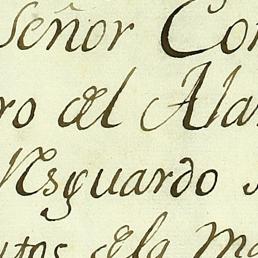 Señor Con
ro del Ala
Resguardo
utos de la Ma